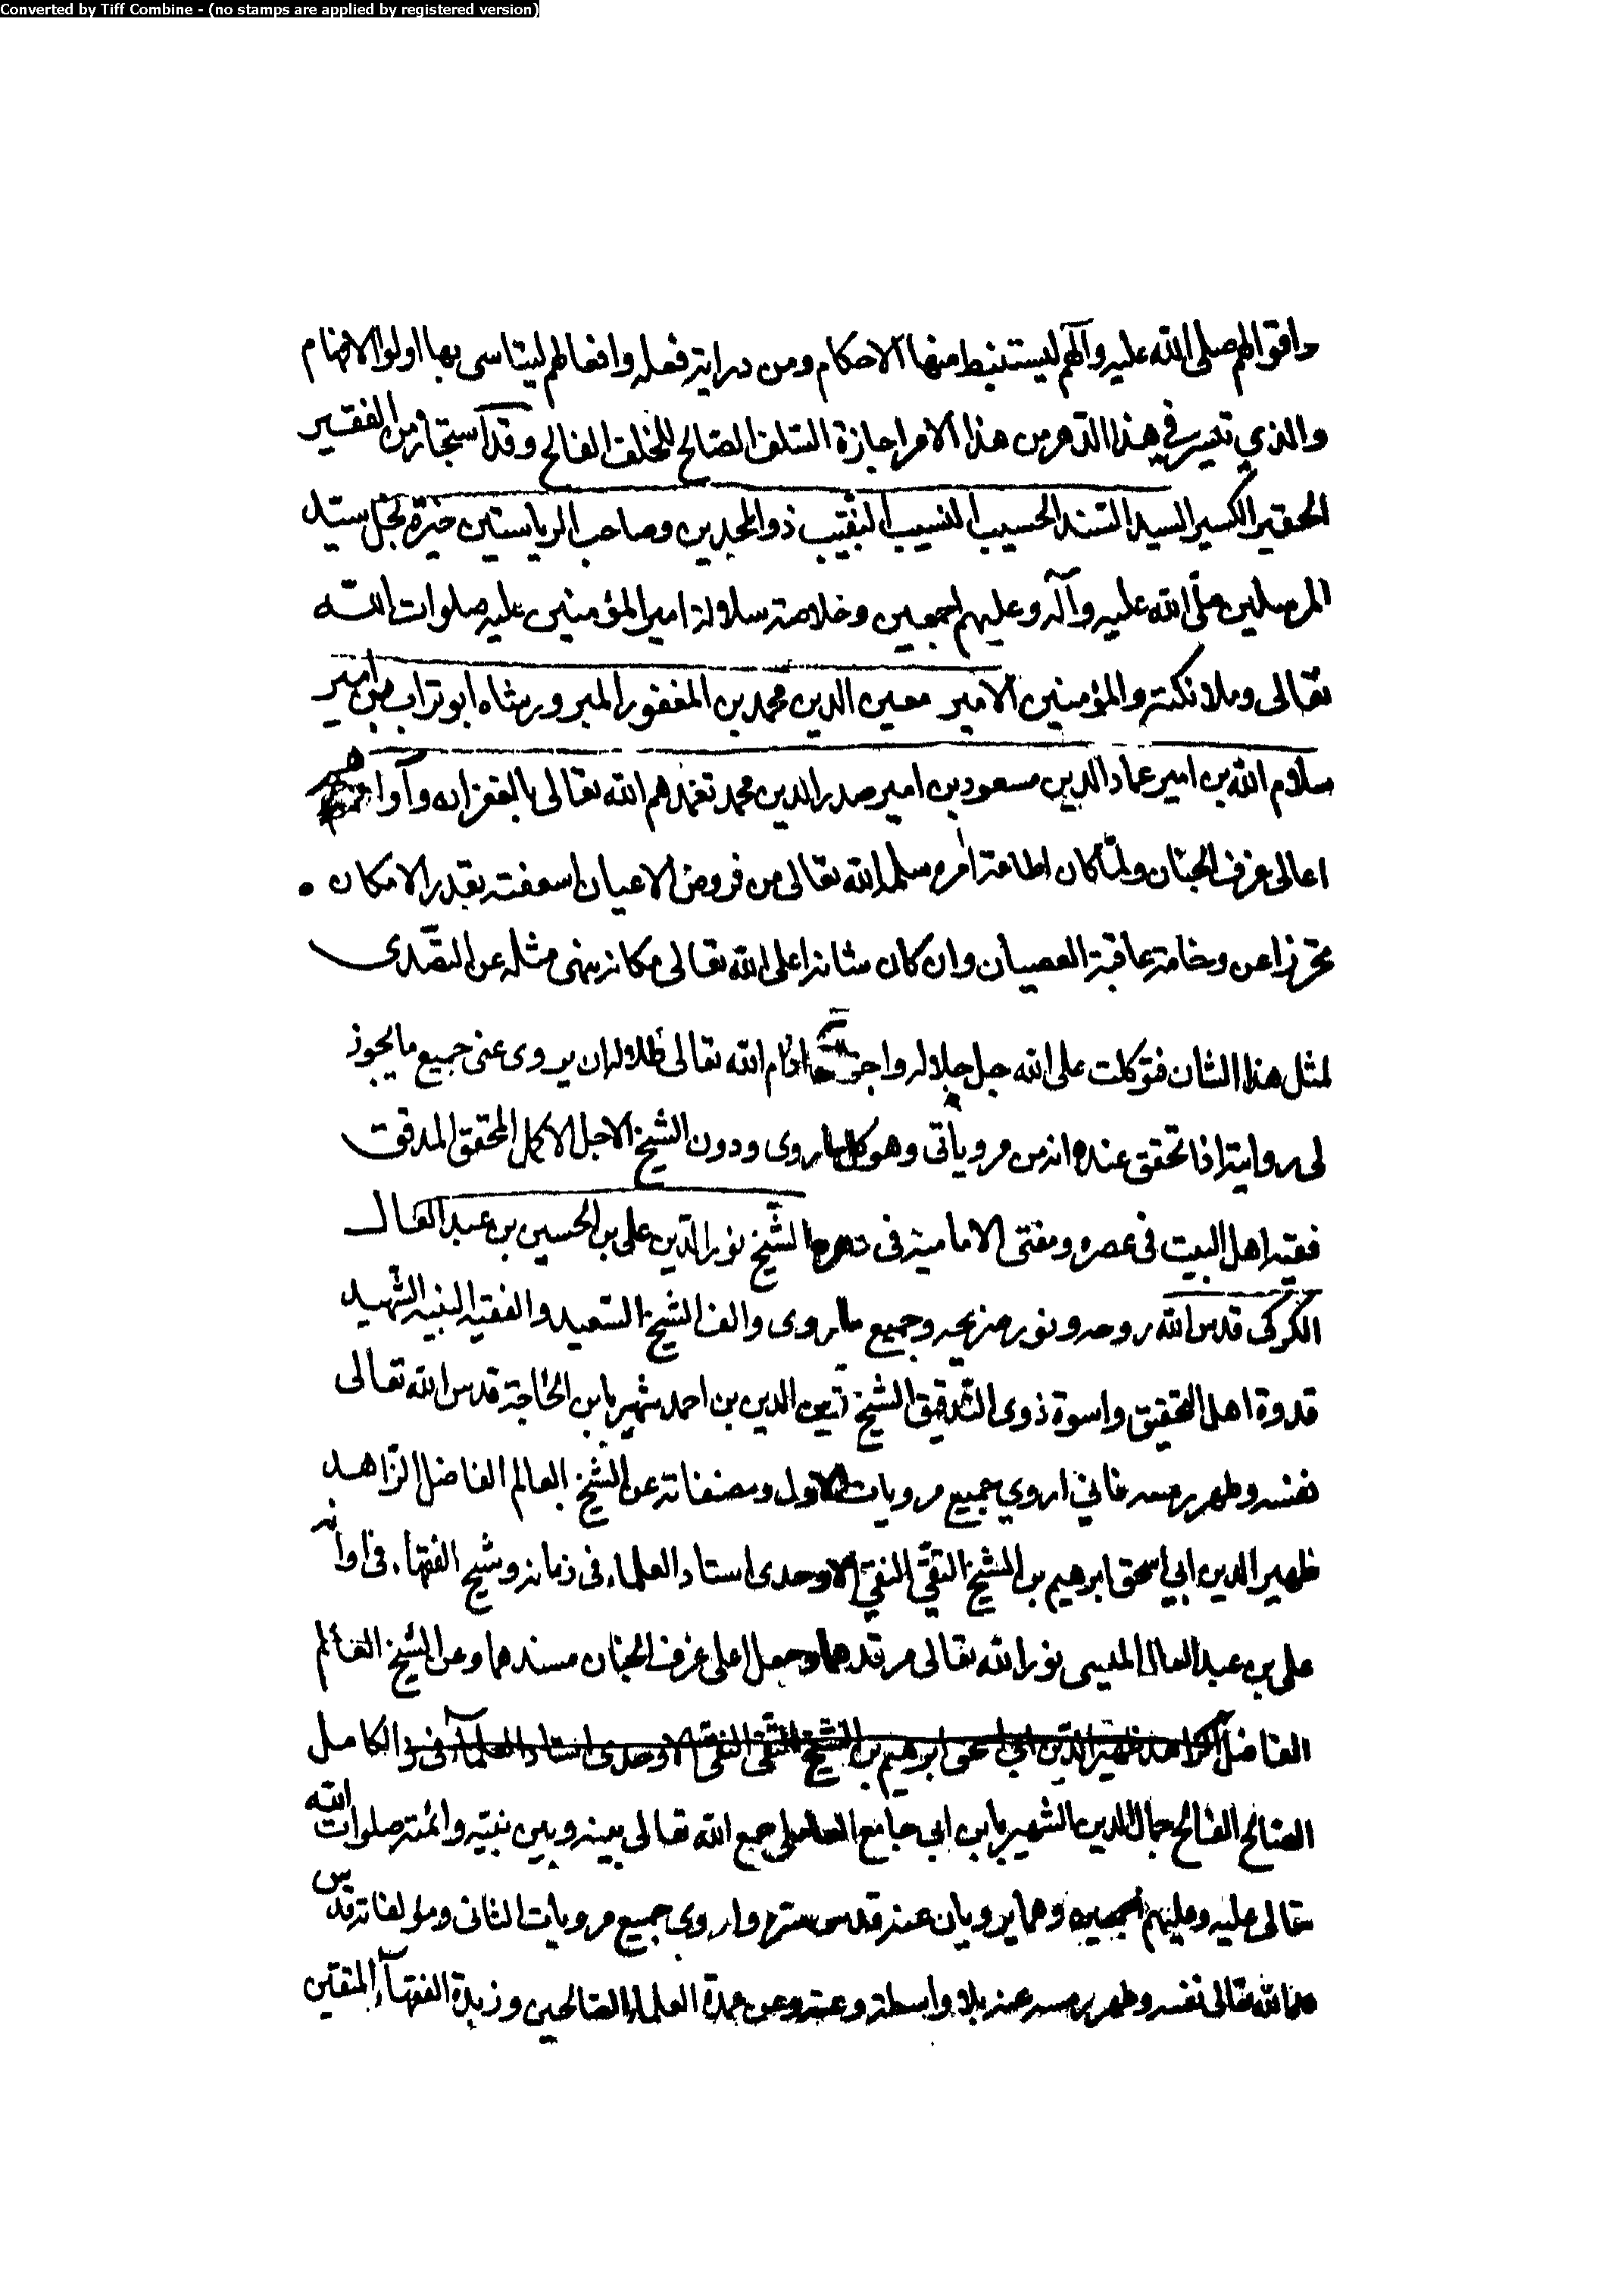 Converted by Tiff Combine - (no stamps are applied by registered version)
واقوالهم صلى الله عليه وآلهم ليستنبط منها الاحكام ومن دراية فعله وافعالهم ليتاسى بها اولوا الافهام
والذي تيسر في هذا الدهر من هذا الامر اجازة السلف الصالح للخلف الفالح وقد استجاز من الفقير
الحقير الكسير السيد السند الحسيب النسيب النقيب ذو المجدين وصاحب الرياستين خيرة نجل سيد
المرسلين صلى الله عليه وآله وعليهم اجمعين وخلاصة سلالة امير المؤمنين عليه صلوات الله
تعالى وملائكته والمؤمنين الامير معين الدين محمد بن المغفور المبرور شاه ابو تراب بن امير
سلام الله بن امير عماد الدين مسعود بن امير صدر الدين محمد تغمدهم الله تعالى بالغفران وآواهم
اعالى غرف الجنان ولما كان اطاعة امره سلمه الله تعالى من فروض الاعيان اسعفته بقدر الامكان
محترزا عن وخامة عاقبة العصيان وان كان شانه اعلى الله تعالى مكانه ينهى مثله عن التصدى
لمثل هذا الشان فتوكلت على الله جل جلاله واجزت ادام الله تعالى ظلاله ان يروى عنى جميع ما يجوز
لى روايته اذا تحقق عنده انه من مروياتى وهو كل ما روى ودون الشيخ الاجل الاكمل المحقق المدقق
فقيه اهل البيت فى عصره ومفتى الامامية فى دهره الشيخ نور الدين على بن الحسين بن عبد العال
الكركى قدس الله روحه ونور ضريحه وجميع ما روى والف الشيخ السعيد والفقيه النبيه الشهيد
قدوة اهل التحقيق واسوة ذوى التدقيق الشيخ زين الدين بن احمد شهير بابن الحاجة قدس الله تعالى
نفسه وطهر رمسه فاني اروي جميع مرويات الاول ومصنفاته عن الشيخ العالم الفاضل الزاهد
ظهير الدين ابي اسحق ابرهيم بن الشيخ التقي النقي الاوحدى استاد العلماء فى زمانه وشيخ الفقهاء فى اوانه
على بن عبد العال الميسى نور الله تعالى مرقدهما وجعل اعلى غرف الجنان مسندهما وعن الشيخ العالم
الفاضل الزاهد ظهير الدين ابي اسحق ابرهيم بن الشيخ التقى النقى الاوحدى استاد العلماء فى ز الكامل
الصالح الفالح جمال الدين الشهير بابن ابي جامع العاملى جمع الله تعالى بينه وبين نبيه وائمته صلوات الله
تعالى عليه وعليهم اجمعين وهما يرويان عنه قدس سره واروي جميع مرويات الثانى ومؤلفاته قدس
الله تعالى نفسه وطهر رمسه عنه بلا واسطة وعنه وعن عمدة العلماء الصالحين وزبدة الفقهاء المتقين